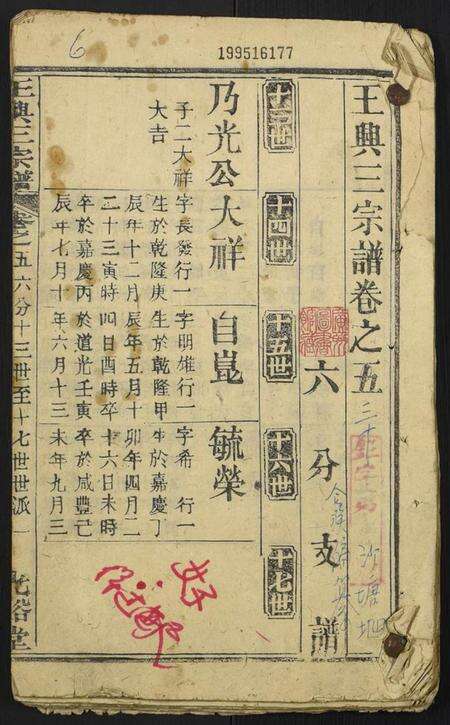 6
199516177
王興三宗譜卷之五
六分支譜
十三世
十四世
十五世
十六世
十七世
乃光公
子二大祥
大吉
大祥
字長發行一
生於乾隆庚
辰年十二月
二十三寅時
卒於嘉慶丙
辰年七月十
自崑
字明雄行一
生於乾隆甲
辰年五月十
四日酉時卒
於道光壬寅
年六月十三
毓榮
字希 行一
生於嘉慶丁
卯年四月二
十六日未時
卒於咸豐己
未年九月三
王興三宗譜
卷之五六分十三世至十七世世派 一
光裕堂